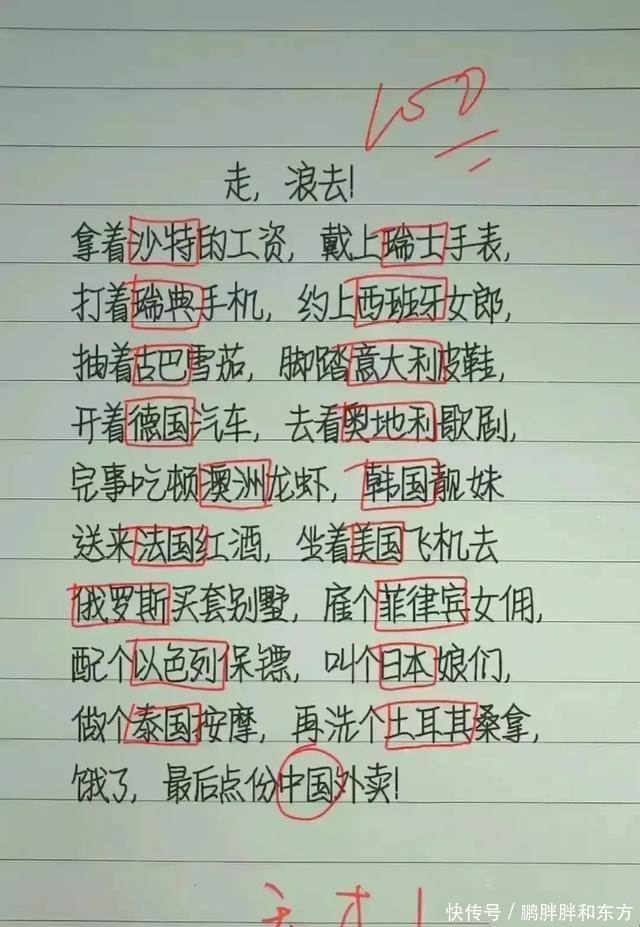 100
走，浪去！
拿着沙特的工资，戴上瑞士手表，
打着瑞典手机，约上西班牙女郎，
抽着古巴雪茄，脚踏意大利皮鞋，
开着德国汽车，去看奥地利歌剧，
完事吃顿澳洲龙虾，韩国靓妹
送来法国红酒，坐着美国飞机去
俄罗斯买套别墅，雇个菲律宾女佣，
配个以色列保镖，叫个日本娘们，
做个泰国按摩，再洗个土耳其桑拿，
饿了，最后点份中国外卖！
快传号／鹏胖胖和东方